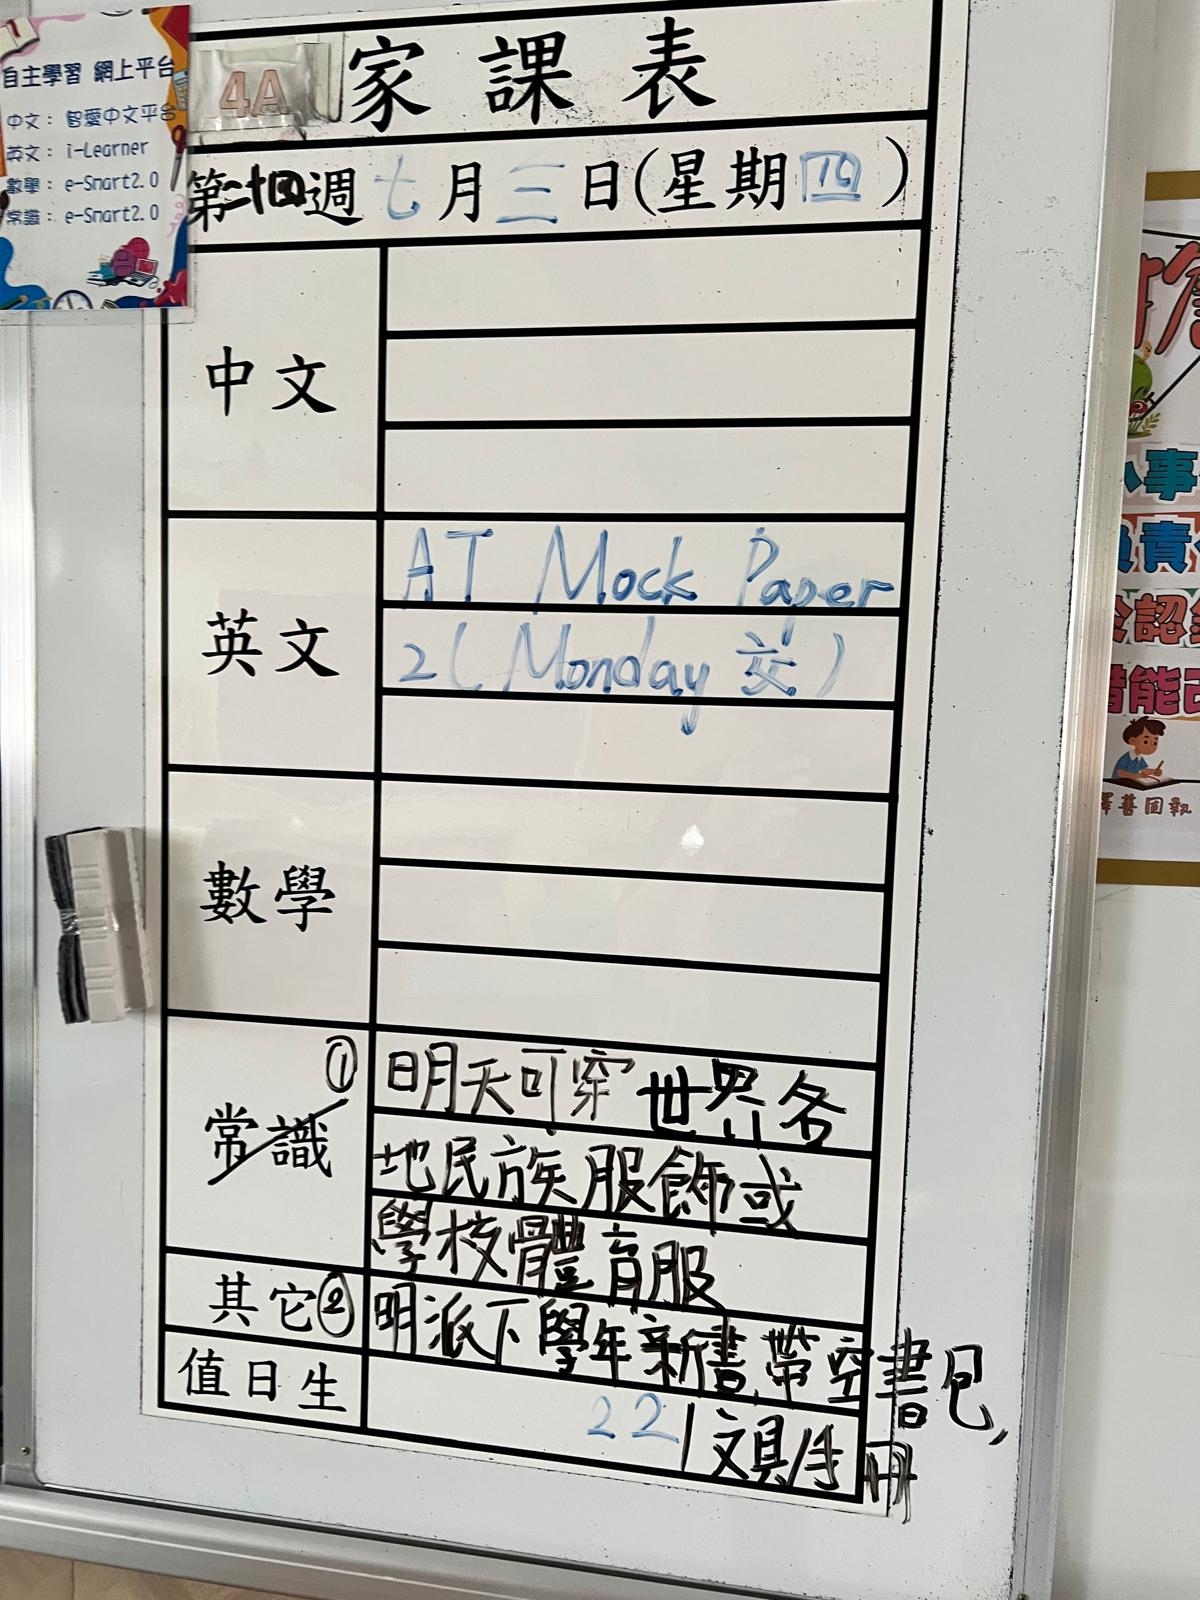 自主學習 網上平台
中文：智愛中文平台
英文：i-Learner
數學：e-Smart2.0
常識：e-Smart2.0
4A 家課表
第二十四週七月三日(星期四)
中文
英文
AT Mock Paper
2(Monday 交)
數學
常識
①明天可穿世界各
地民族服飾或
學校體育服
其它②明派下學年新書,帶空書包,
值日生 22 文具/手冊
小事
負責
認錯
能改
擇善固執